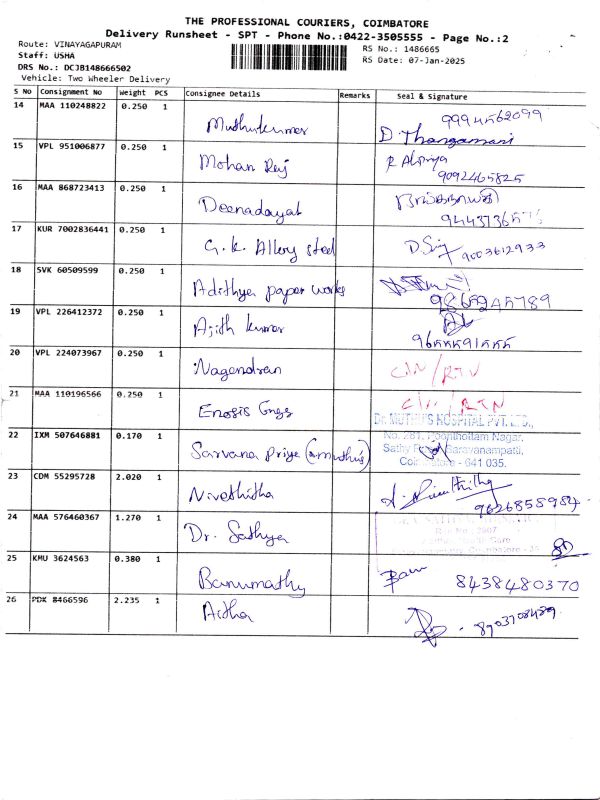 THE PROFESSIONAL COURIERS, COIMBATORE
Delivery Runsheet - SPT - Phone No.:0422-3505555 - Page No.:2
Route: VINAYAGAPURAM
Staff: USHA
DRS No.: DCJB148666502
Vehicle: Two Wheeler Delivery
RS No.: 1486665
RS Date: 07-Jan-2025
S No Consignment No Weight PCS Consignee Details Remarks Seal & Signature
14 MAA 110248822 0.250 1 Muthukumar 9994562099
D. Thangamani
15 VPL 951006877 0.250 1 Mohan Raj
9092465825
16 MAA 868723413 0.250 1 Deenadayal
17 KUR 7002836441 0.250 1 G.K. Allery steel 9003612933
18 SVK 60509599 0.250 1 Adithya paper works
9865245789
19 VPL 226412372 0.250 1 Ajith kumar
20 VPL 224073967 0.250 1 Nagendran
21 MAA 110196566 0.250 1 Enosis Engs
Dr. MUTHU'S HOSPITAL PVT. LTD.,
22 IXM 507646881 0.170 1 Sarvana Priya
Saravanampatti,
Coimbatore - 641 035.
23 CDM 55295728 2.020 1 Nivethitha
24 MAA 576460367 1.270 1 Dr. Sathya
25 KMU 3624563 0.380 1 Banumathy 8438480370
26 PDK 8466596 2.235 1